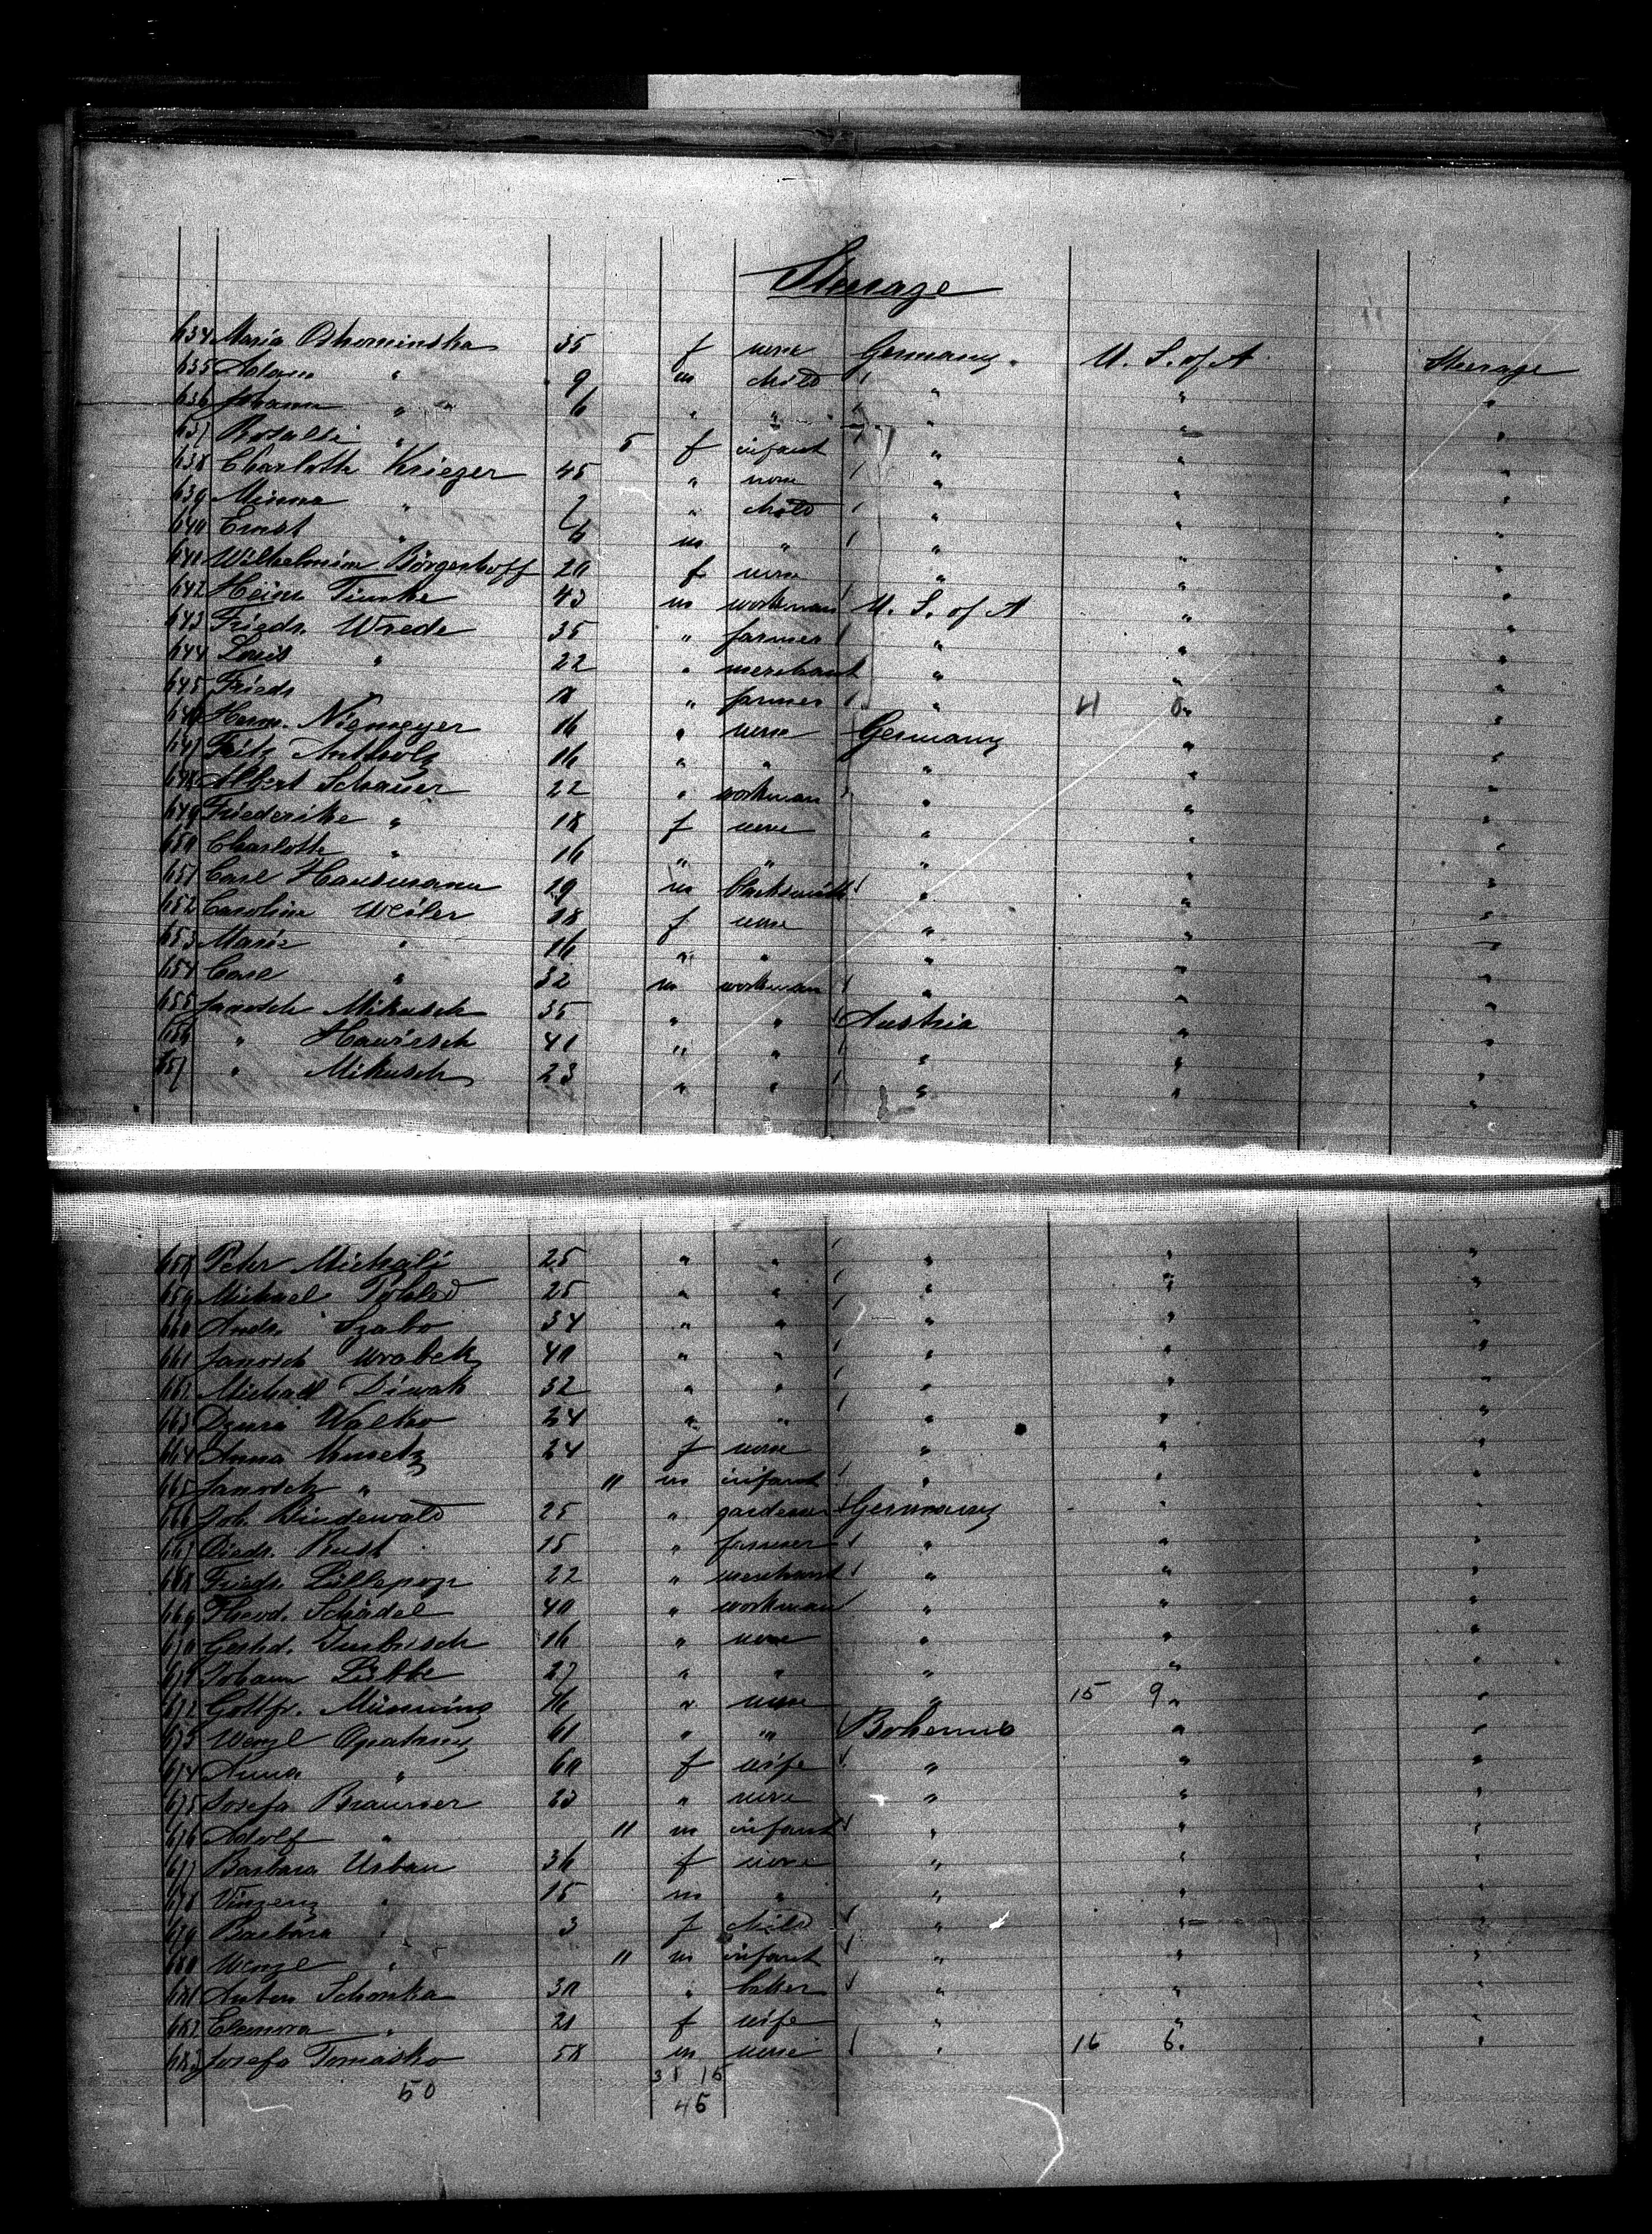 Steerage
634 Maria Oskominska 35 f none Germany U. S. of A Steerage
635 Adam " 9 m child " " "
636 Johann " 6 " " " " "
637 Rosalie " 5 f infant " " "
638 Charlotte Krieger 45 " none " " "
639 Minna " 7 " child " " "
640 Ernst " 6 m " " " "
641 Wilhelmine Börgerhoff 20 f none " " "
642 Heinr Timke 43 m workman U. S. of A " "
643 Friedr. Wrede 35 " farmer " " "
644 Louis " 22 " merchant " " "
645 Friedr " farmer " 4 0 " "
646 Herm. Niemeyer 16 " none Germany " "
647 Fritz Antholz 16 " " " " "
648 Albert Schauer 22 " workman " " "
649 Friederike " 18 f none " " "
650 Charlotte " 16 " " " " "
651 Carl Hausmann 19 m blacksmith " " "
652 Caroline Weiler 18 f none " " "
653 Marie " 16 " " " " "
654 Carl " 32 m workman " " "
655 Janosch Mikusch 35 " " Austria " "
656 " Hawrisch 41 " " " " "
657 " Mikusch 23 " " " " "
658 Peter Michali 25 " " " " "
659 Michael 25 " " " " "
660 Andr. Szabo 34 " " " " "
661 Janosch Wrabek 40 " " " " "
662 Michael Diwak 32 " " " " "
663 Walko 24 " " " " "
664 Anna 24 f none " " "
665 Janosch " 11 m infant " " "
666 Joh. Bindewald 25 " gardener Germany " "
667 Diedr. Rust 15 " farmer " " "
668 Friedr. Lüllepop 22 " merchant " " "
669 Theod. Schädel 40 " workman " " "
670 Gerhd. 16 " none " " "
671 Johann Lübbe 27 " " " " "
672 Gottfr. Münning 16 " none " 15 9 " "
673 Wenzl Opatrny 61 " " Bohemia " "
674 Anna " 60 f wife " " "
675 Josefa Brauner 23 " none " " "
676 Adolf " 11 m infant " " "
677 Barbara Urban 36 f none " " "
678 Vinzenz " 15 m " " " "
679 Barbara " 3 f child " " "
680 Wenzl " 11 m infant " " "
681 Anton Schonka 30 " baker " " "
682 Eleonora " 21 f wife " " "
683 Josefa Tomasko 58 m none " 16 6 " "
50 31 15
46